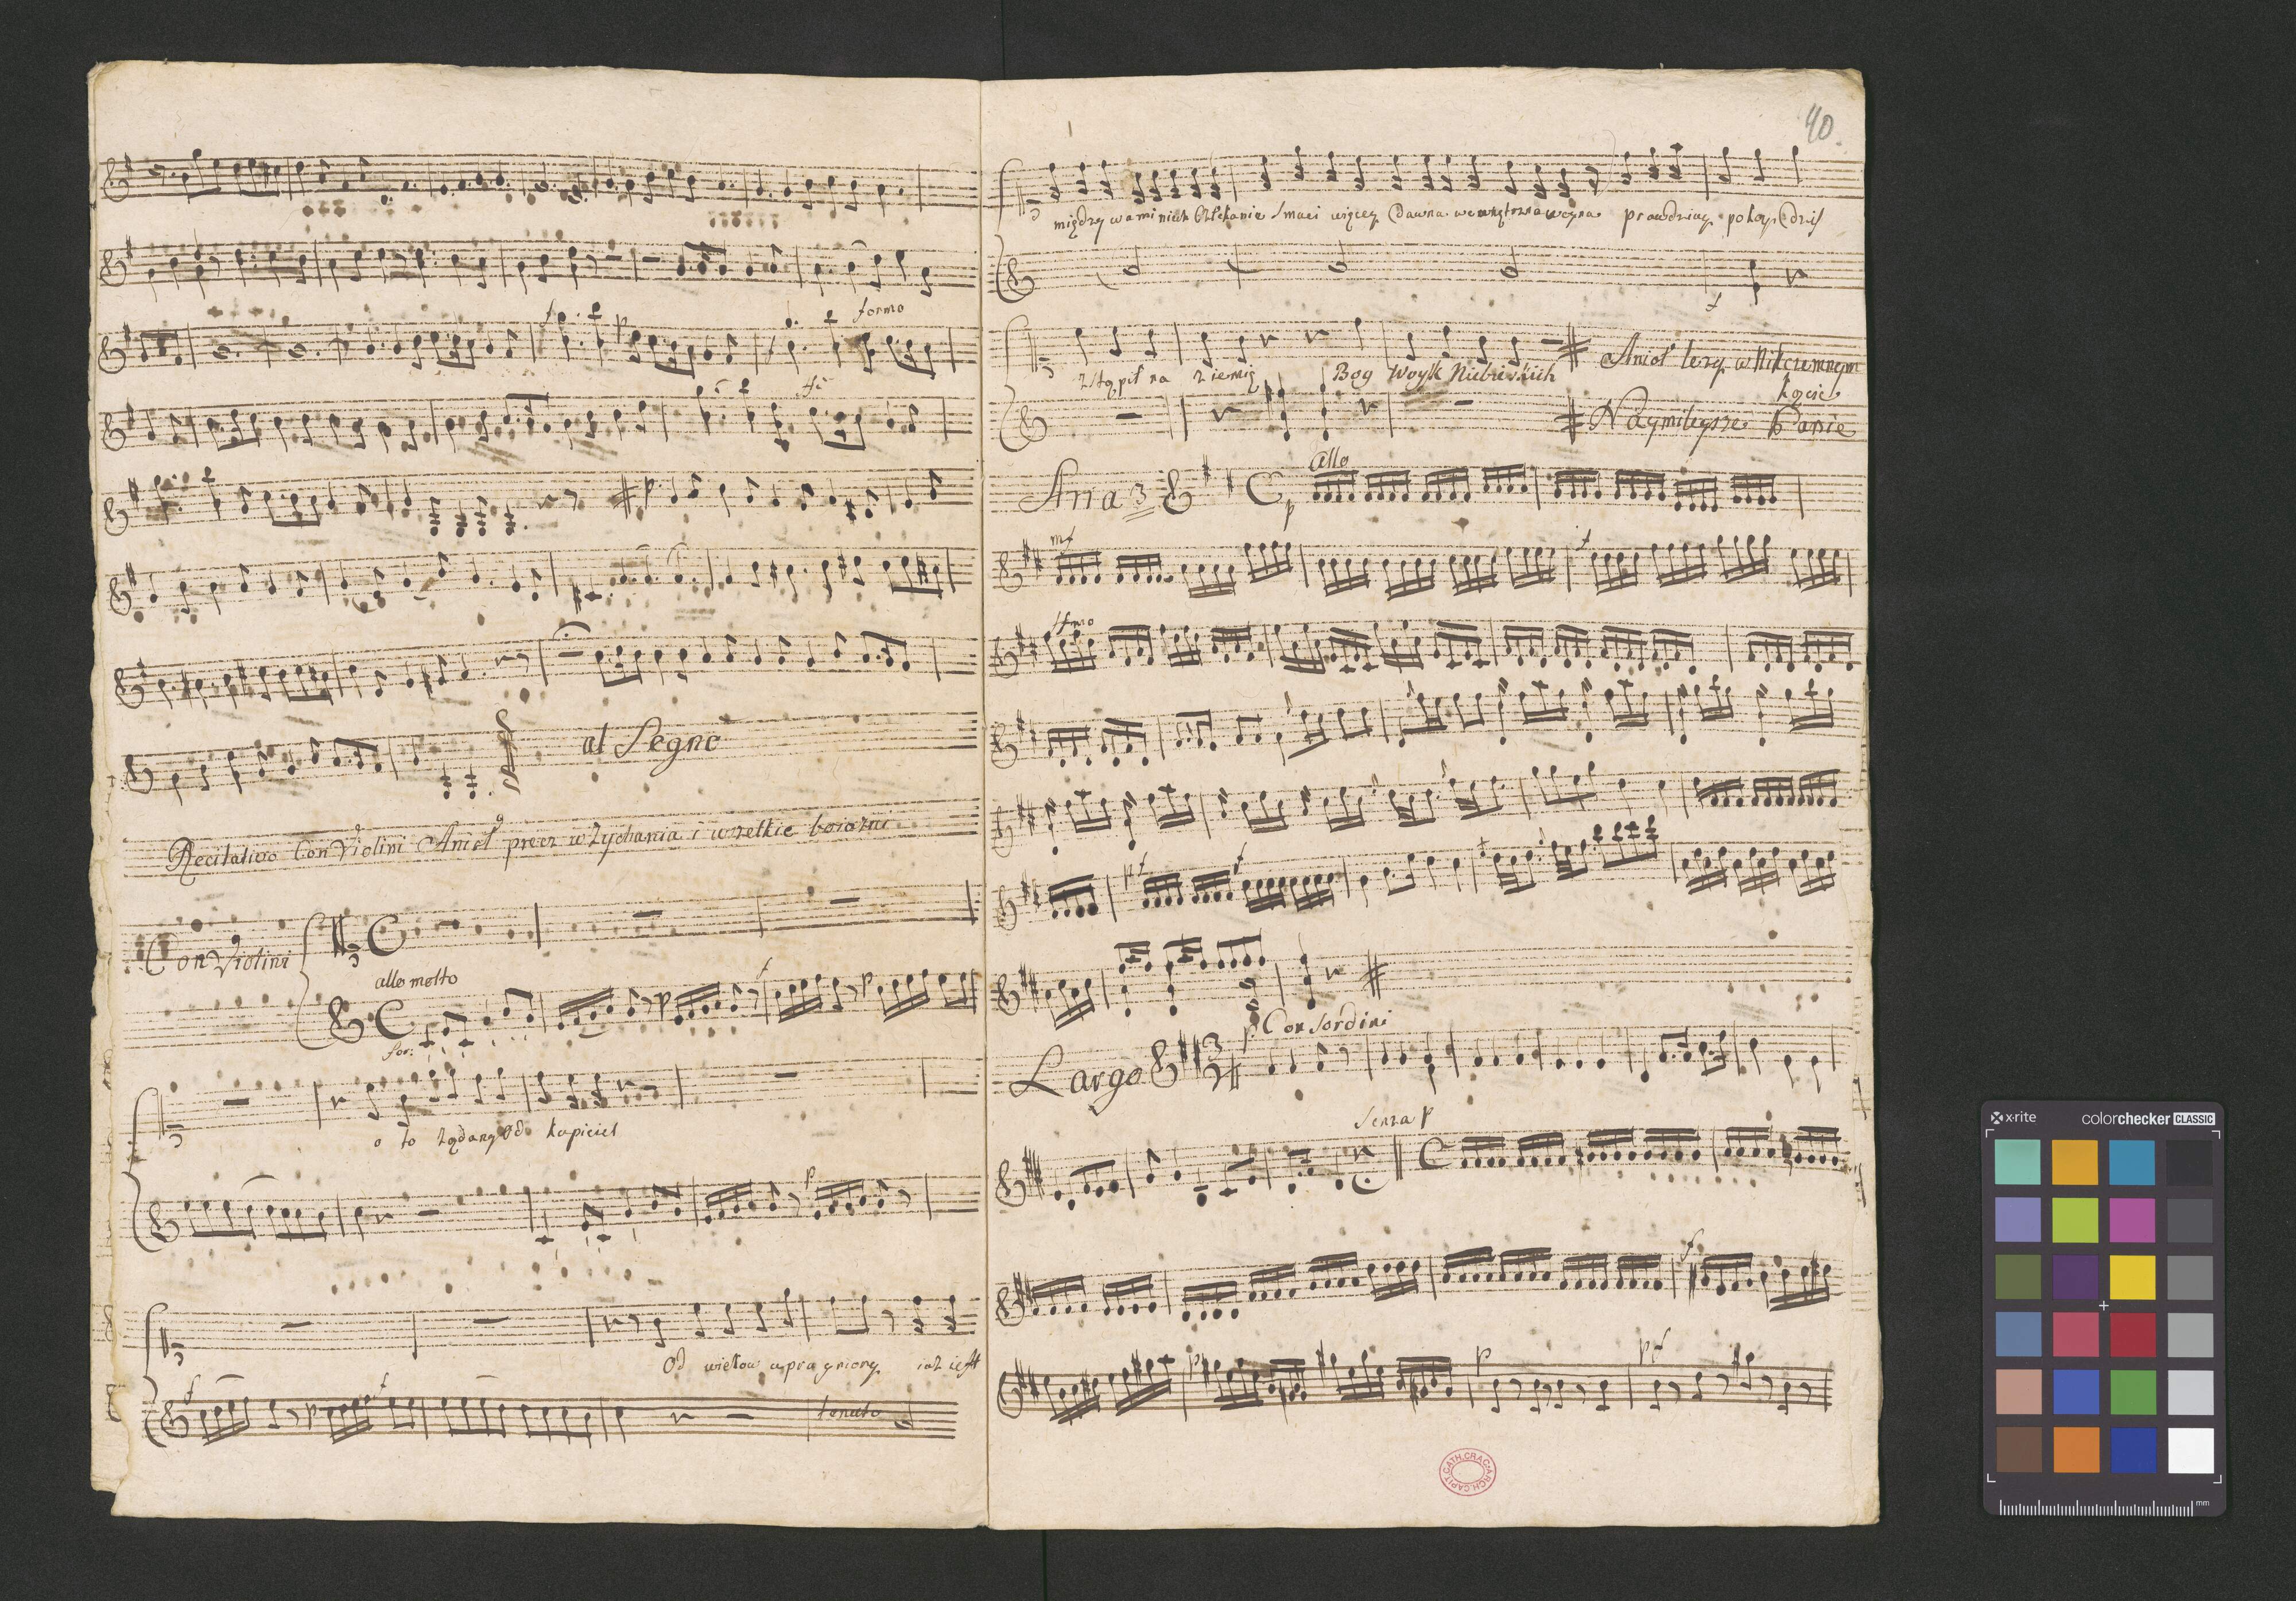 f p formo
f fè
p
al Segno
Recitativo Con Violini Anioł precz wzdychania i wszelkie boiazni
Con Violini
allo molto
for: p f p
o to żądany Od kupiciel
p
Od wieków upragniony iuż iest
f p f tenuto
40
między wami niech smuci więcey dawna wewnętrzna woyna prawdziwy pokoy dziś
f
zstąpił na ziemię Bog Woysk Niebieskich Anioł leży w Nikczemnym
łozie
Naymilegsze Panie
Aria 3 allo
p
mf f
fmo
pf f
Con Sordini
Largo p
Senza p
f
p p pf
ARCH. CAPIT. CATH. CRAC.
x-rite colorchecker CLASSIC
mm